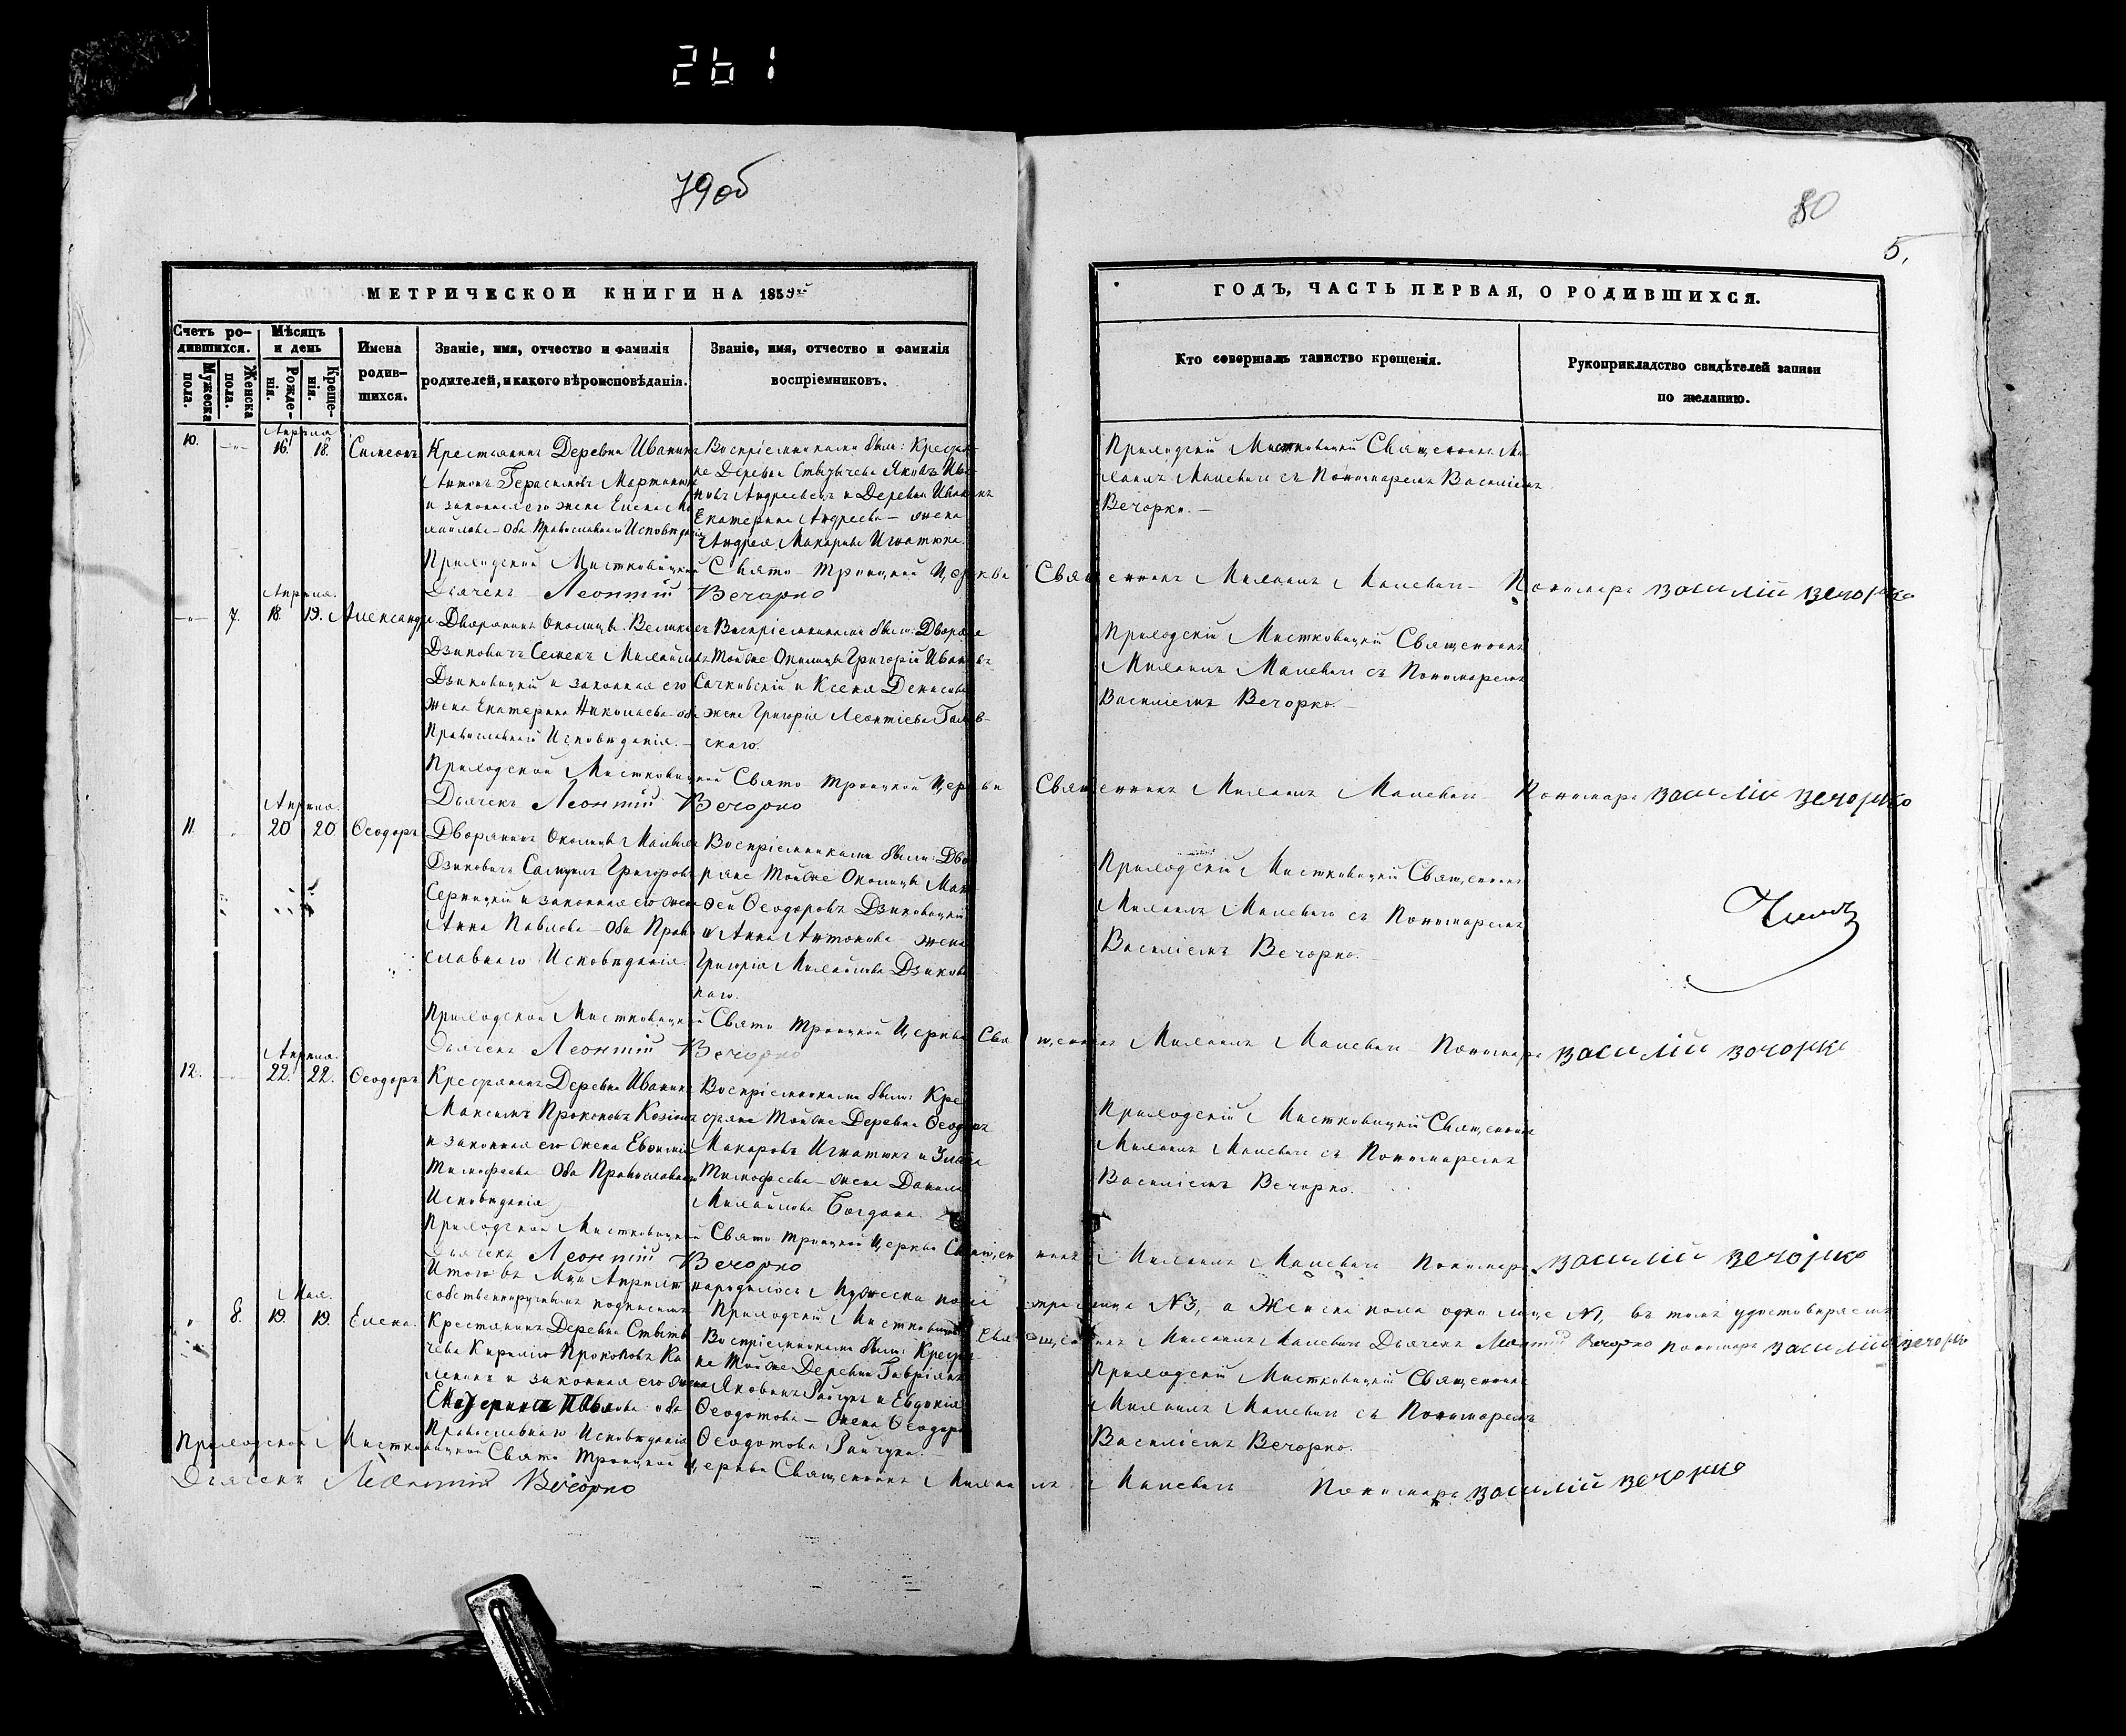 261
79об
80
5.
МЕТРИЧЕСКОЙ КНИГИ НА 1859й
Счетъ ро-
дившихся.
Мужеска
пола.
Женска
пола.
Мѣсяцъ
и день
Рожде-
нія.
Креще-
нія.
Имена
родив-
шихся.
Званіе, имя, отчество и фамилія
родителей, и какого вѣроисповѣданія.
Званіе, имя, отчество и фамилія
воспріемниковъ.
ГОДЪ, ЧАСТЬ ПЕРВАЯ, О РОДИВШИХСЯ.
Кто совершалъ таинство крещенія.
Рукоприкладство свидѣтелей записи
по желанію.
Апрѣля
10. 16. 18. Симеонъ
Крестьянинъ Деревни Иваникъ
Антонъ Герасимовъ Мартинюкъ
и законная его жена Елена Ми
хайлова – Оба Православнаго Исповѣданія
Воспріемниками были: Крестья-
не Деревни Ститычева Яковъ Ива
новъ Андреевецъ и Деревни Иваникъ
Екатерина Андреева – жена
Андрея Макарова Игнатюка.
Приходскій Мистковицкій Священникъ Ми
хаилъ Малевичъ съ Пономаремъ Василіемъ
Вечорко. –
Приходской Мистковицкой Свято Троицкой Церкви Священникъ Михаилъ Малевичъ – Пономарь Василій Вечорко
Дьячекъ Леонтій Вечорко
Апрѣля.
7. 18. 19. Александра
Дворянинъ Околицы Великихъ
Дзиковичъ Семенъ Михайловъ
Дзиковицкій и законная его
жена Екатерина Николаева оба
Православнаго Исповѣданія. –
Воспріемниками были: Дворяне
Тойже Околицы Григорій Ивановъ
Сачковскій и Ксенія Денисова
жена Григорія Леонтіева
скаго.
Приходскій Мистковицкій Священникъ
Михаилъ Малевичъ съ Пономаремъ
Василіемъ Вечорко. –
Приходской Мистковицкой Свято Троицкой Церкви Священникъ Михаилъ Малевичъ – Пономарь Василій Вечорко
Дьячекъ Леонтій Вечорко
Апрѣля.
11. 20 20 Ѳеодоръ
Дворянинъ Околицы Малыхъ
Дзиковичъ Григоровъ
Серницкій и законная его жена
Анна Павлова – Оба Право
славнаго Исповѣданія.
Воспріемниками были: Дво
ряне Тойже Околицы
Ѳеодоровъ Дзиковицкій
и Анна Антонова жена
Григорія Михайлова Дзикови
каго.
Приходскій Мистковицкій Священникъ
Михаилъ Малевичъ съ Пономаремъ
Василіемъ Вечорко. –
Приходской Мистковицкой Свято Троицкой Церкви Священникъ Михаилъ Малевичъ Пономарь Василій Вочорко
Дьячекъ Леонтій Вечорко
Апрѣля.
12. 22. 22. Ѳеодоръ
Крестьянинъ Деревни Иваникъ
Максимъ Прокоповъ
и законная его жена Евфимія
Тимофеева Оба Православнаго
Исповѣданія
Воспріемниками были: Кре
стьяне Тойже Деревни Ѳеодоръ
Макаровъ Игнатюкъ и
Тимофеева – жена Данила
Михайлова Богдана.
Приходскій Мистковицкій Священникъ
Михаилъ Малевичъ съ Пономаремъ
Василіемъ Вечорко. –
Приходской Мистковицкой Свято Троицкой Церкви Священникъ Михаилъ Малевичъ Пономарь Василій Вечорко
Дьячекъ Леонтій Вечорко
Итого въ Мцѣ Апрѣлѣ народилось Мужеска пола три лица №3, а Женска пола одно лице №1, въ томъ удостовѣряемъ
собственноручнымъ подписомъ Приходскій Мистковицкій Священникъ Михаилъ Малевичъ Дьячекъ Леонтій Вечорко Пономарь Василій Вечорко
Мая.
8. 19. 19. Елена.
Крестьянинъ Деревни Ститы
чева Кирилло Прокоповъ Ка
и законная его жена
Екатерина Павлова оба
Православнаго Исповѣданія
Воспріемниками были: Крестья
не Тойже Деревни Гавріилъ
Яковъ и Евдокія
Ѳеодотова – жена Ѳеодора
Ѳеодотова Райчука.
Приходскій Мистковицкій Священникъ
Михаилъ Малевичъ съ Пономаремъ
Василіемъ Вечорко.
Приходской Мистковицкой Свято Троицкой Церкви Священникъ Михаилъ Малевичъ Пономарь Василій Вечорко
Дьячекъ Леонтій Вечорко